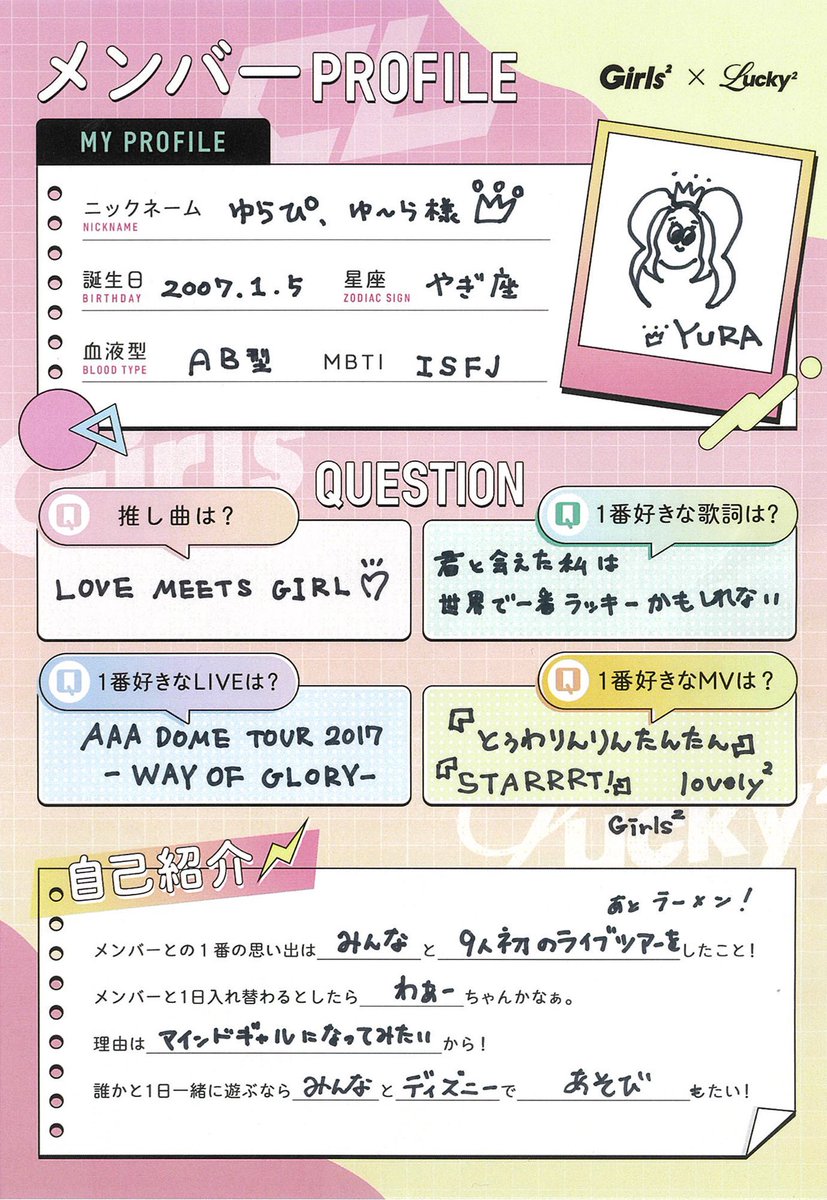 メンバーPROFILE
Girls² × Lucky²
MY PROFILE
ニックネーム ゆらぴ、ゆ〜ら様
NICKNAME
誕生日 2007.1.5 星座 やぎ座
BIRTHDAY ZODIAC SIGN
血液型 AB型 MBTI ISFJ
BLOOD TYPE
YURA
Girls
QUESTION
Q 推し曲は?
LOVE MEETS GIRL♡
Q 1番好きな歌詞は?
君と会えた私は
世界で一番ラッキーかもしれない
Q 1番好きなLIVEは?
AAA DOME TOUR 2017
-WAY OF GLORY-
Q 1番好きなMVは?
『とぅわりんりんたんたん』
『STARRRT!』 lovely²
Girls²
Lucky²
自己紹介
あと ラーメン!
メンバーとの1番の思い出はみんなと9人初のライブツアーをしたこと!
メンバーと1日入れ替わるとしたらわぁーちゃんかなぁ。
理由はマインドギャルになってみたいから!
誰かと1日一緒に遊ぶならみんなとディズニーであそびもたい!